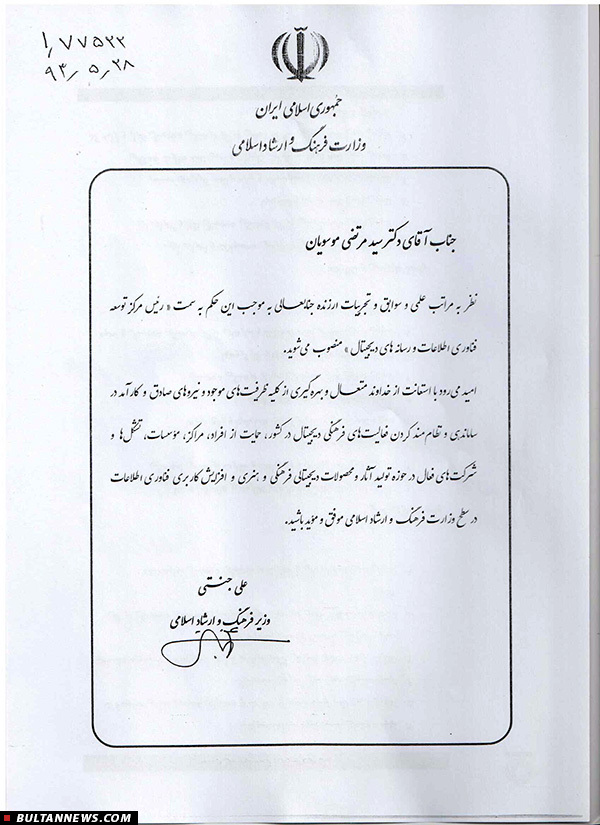 ۱٫۷۷۵۲۲
۹۳٫۵٫۲۸
جمهوری اسلامی ایران
وزارت فرهنگ و ارشاد اسلامی
جناب آقای دکتر سید مرتضی موسویان
نظر به مراتب علمی و سوابق و تجربیات ارزنده جنابعالی به موجب این حکم به سمت « رئیس مرکز توسعه
فناوری اطلاعات و رسانه های دیجیتال » منصوب می‌شوید.
امید می‌رود با استعانت از خداوند متعال و بهره گیری از کلیه ظرفیت‌های موجود و نیروهای صادق و کارآمد در
ساماندهی و نظام‌مند کردن فعالیت‌های فرهنگی دیجیتال در کشور، حمایت از افراد، مراکز، مؤسسات، تشکل‌ها و
شرکت‌های فعال در حوزه تولید آثار و محصولات دیجیتالی فرهنگی و هنری و افزایش کاربری فناوری اطلاعات
در سطح وزارت فرهنگ و ارشاد اسلامی موفق و مؤید باشید.
علی جنتی
وزیر فرهنگ و ارشاد اسلامی
BULTANNEWS.COM